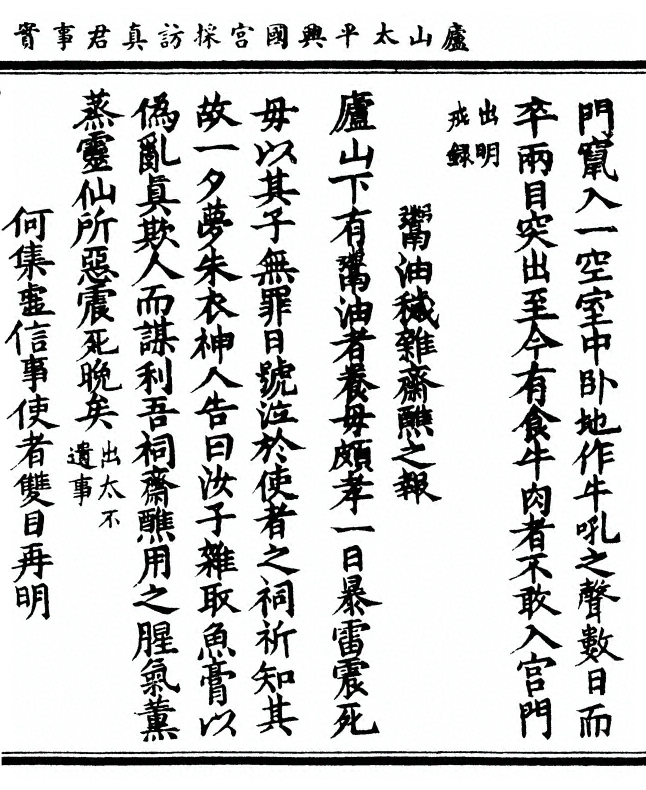 廬山太平興國宮採訪真君事實
門竄入一空室中卧地作牛吼之聲數日而
卒兩目突出至今有食牛肉者不敢入宮門
出明
戒録
鬻油穢雜齋醮之報
廬山下有鬻油者養母頗孝一日暴雷震死
母以其子無罪日號泣於使者之祠祈知其
故一夕夢朱衣神人告曰汝子雜取魚膏以
偽亂真欺人而謀利吾祠齋醮用之腥氣薰
蒸靈仙所惡震死晚矣出太不
遺事
何集虚信事使者雙目再明